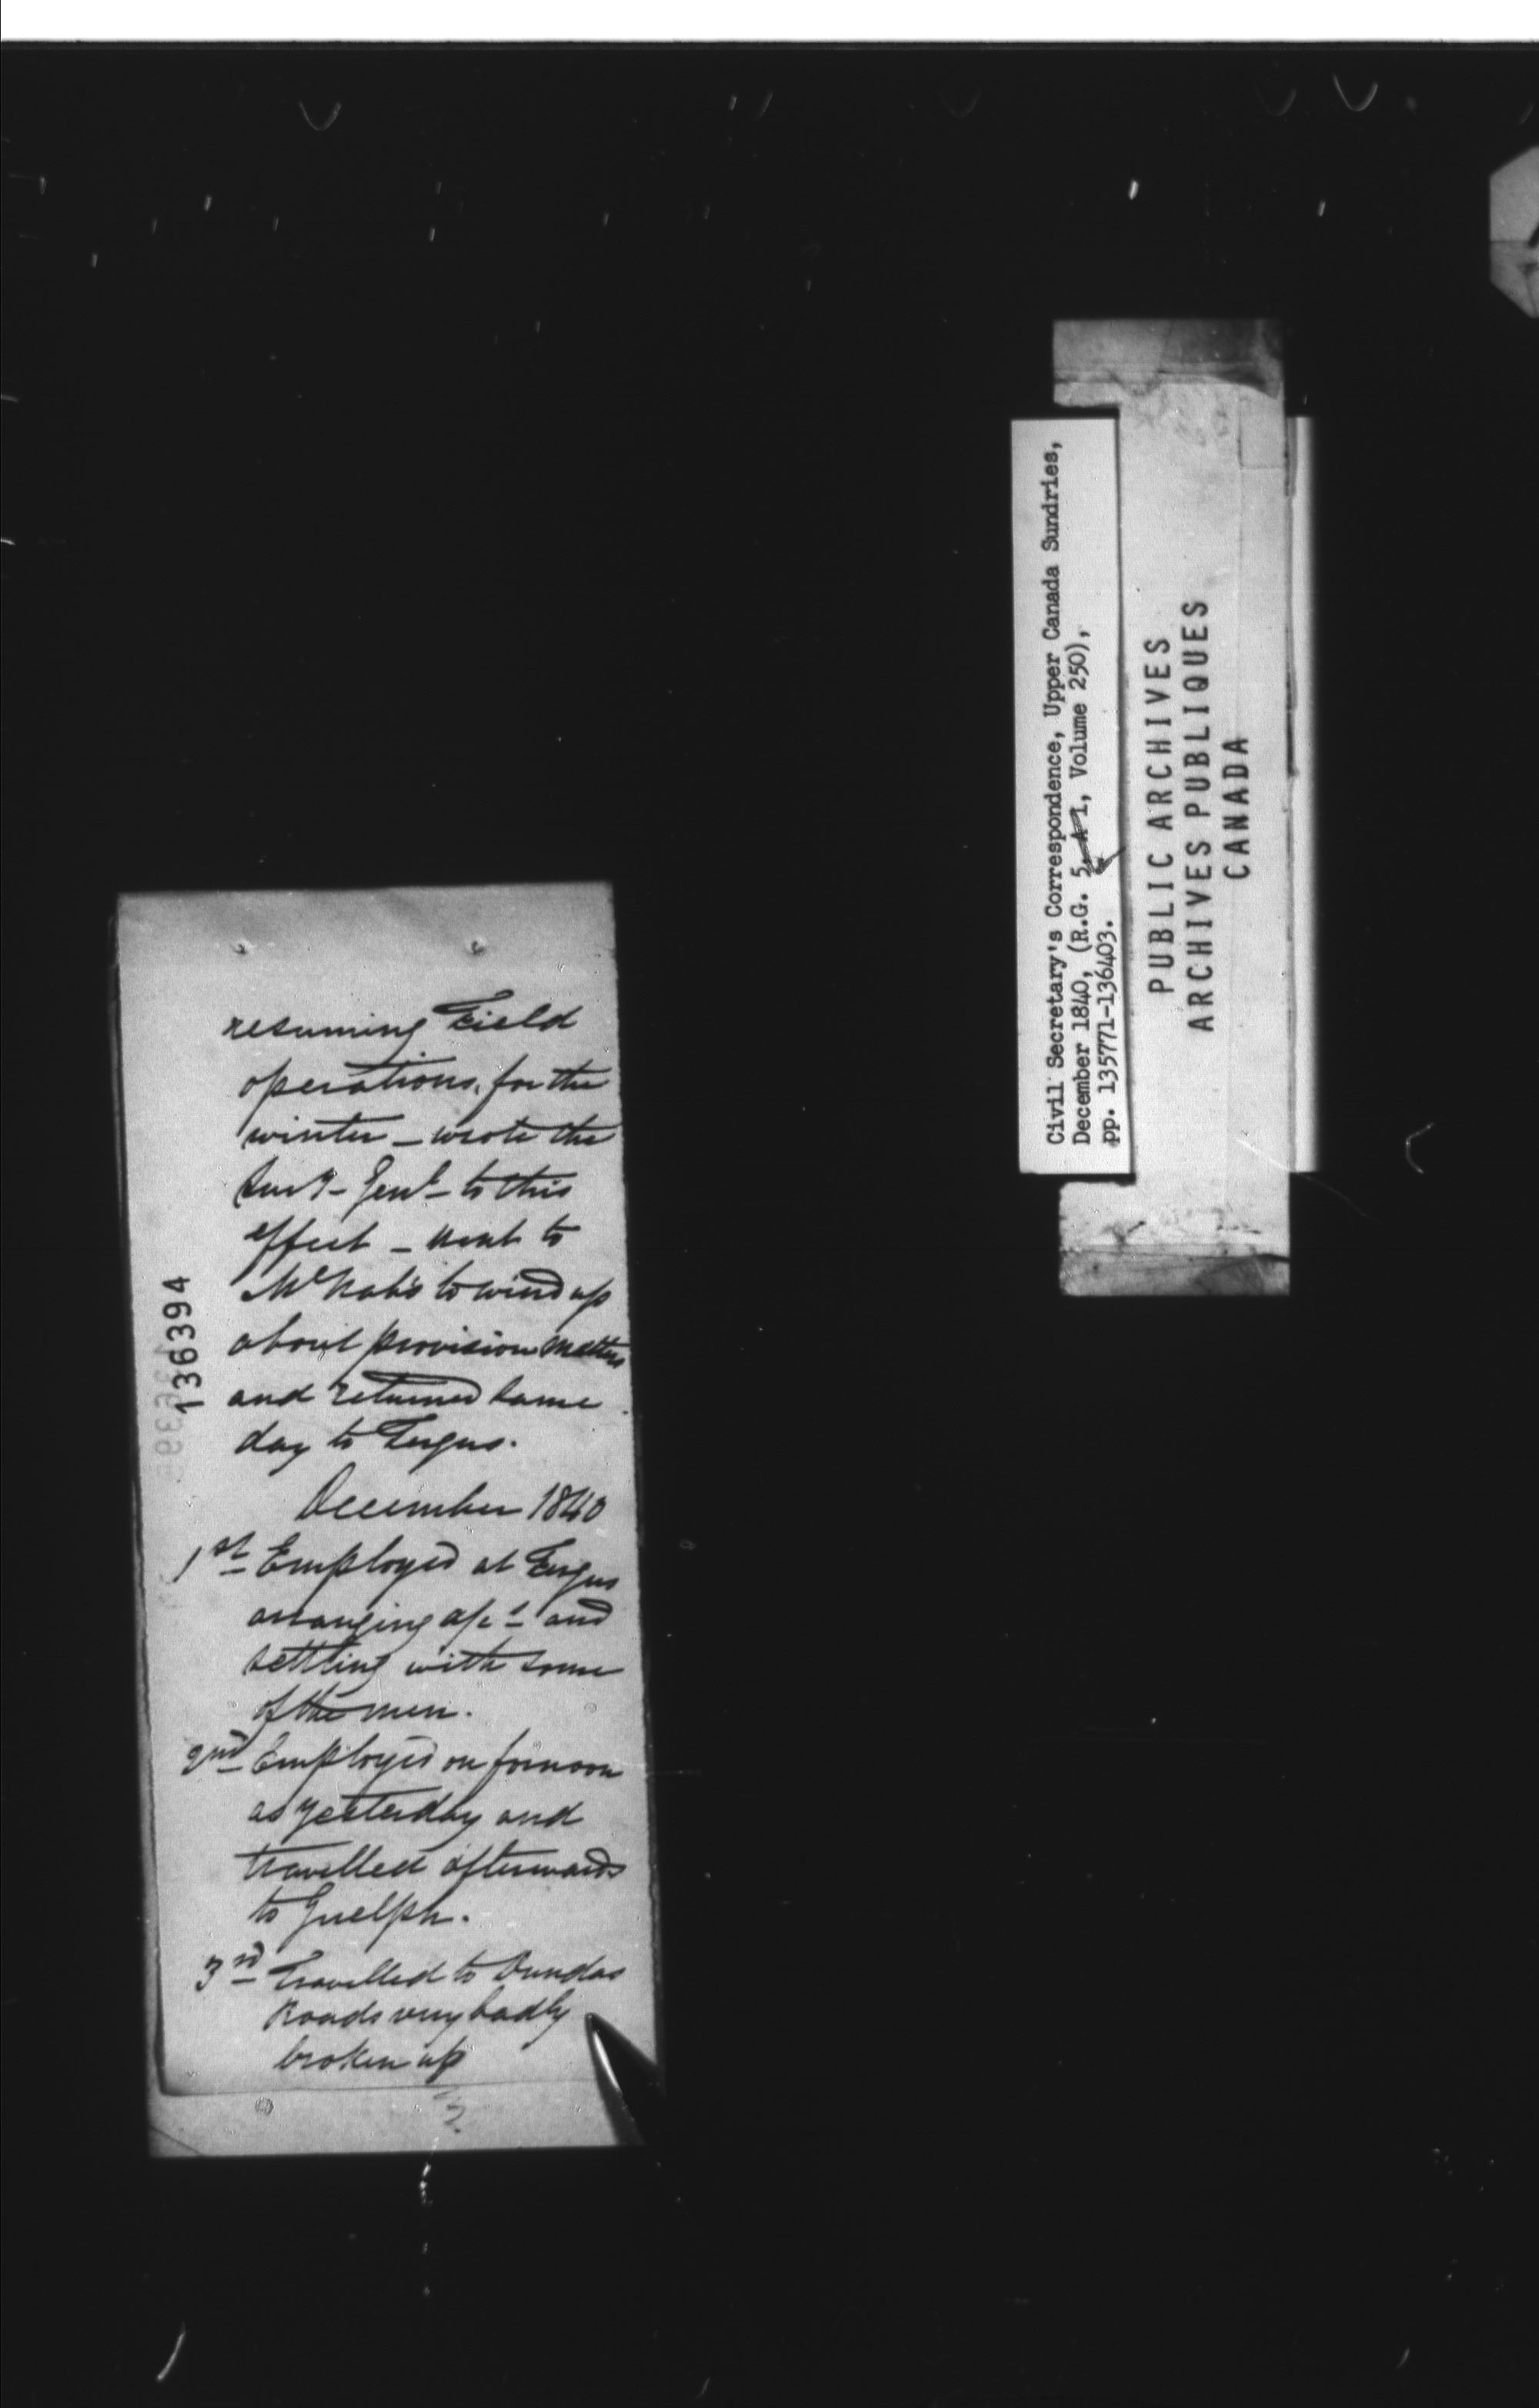 resuming Field
operations, for the
winter – wrote the
Survr – Genl – to this
effect – went to
McNab's to wind up
about provision matters
and returned same
day to Fergus.
December 1840
1st Employed at Fergus
arranging a/cs and
settling with some
of the men.
2nd Employed on fornoon
as yesterday and
travelled afterwards
to Guelph.
3rd Travelled to Dundas
Roads very badly
broken up
136394
Civil Secretary's Correspondence, Upper Canada Sundries,
December 1840, (R.G. 5, A 1, Volume 250),
pp. 135771-136403.
PUBLIC ARCHIVES
ARCHIVES PUBLIQUES
CANADA